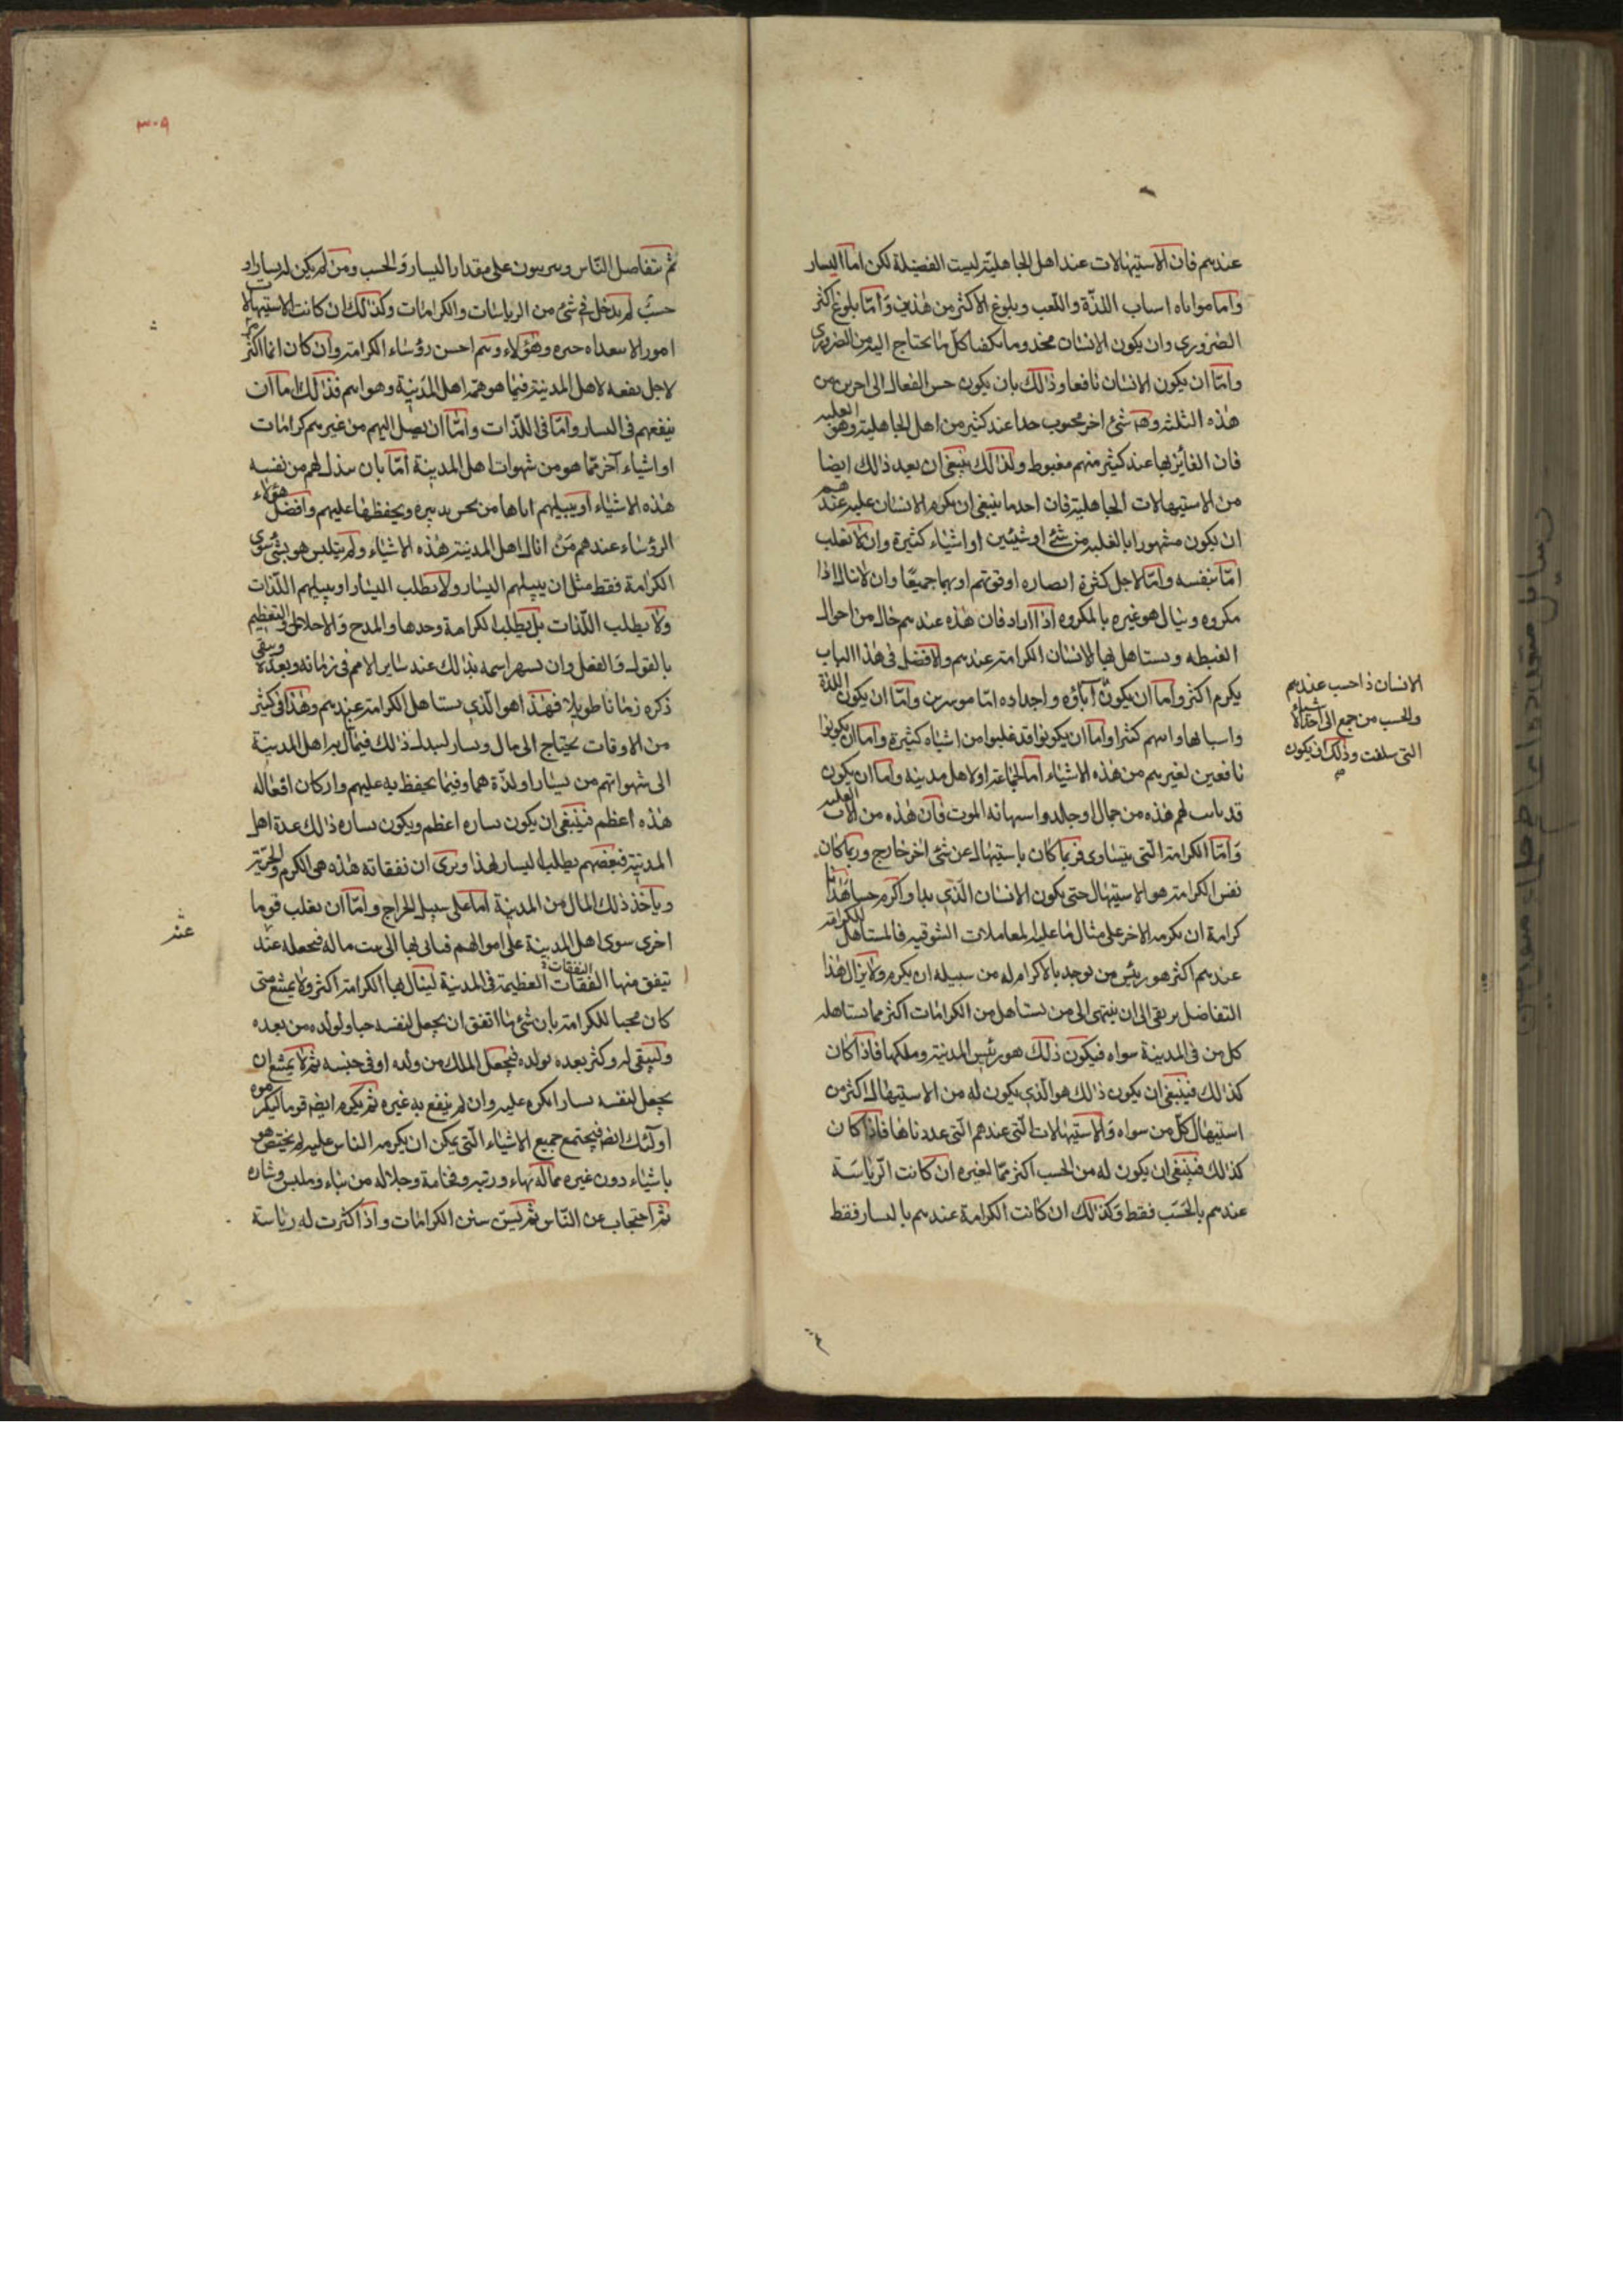 عندهم فان الاستيهالات عند اهل الجاهلية ليست الفضيلة لكن اما اليسار
واما مواتاه اسباب اللذة واللعب وبلوغ الاكثر من هذين واما بلوغ اكثر
الضروري وان يكون الانسان مخدوما مكفيا كل ما يحتاج اليه من الضروري
واما ان يكون الانسان نافعا وذلك بان يكون حسن الفعال الى اخرين من
هذه الثلثه وهنا شئ اخر محبوب جدا عند كثير من اهل الجاهلية وهو الغلبه
فان الفائز بها عند كثير منهم مغبوط ولذلك ينبغي ان يعد ذالك ايضا
من الاستيهالات الجاهلية فان احد ما ينبغي ان يكرم الانسان عليه عندهم
ان يكون مشهورا بالغلبه من شئ او شيئين او اشياء كثيرة وان لا يغلب
اما بنفسه واما لاجل كثرة انصاره او قوتهم او بهما جميعا وان لا ينال اذا
مكروه وينال هو غيره بالمكروه اذا اراد فان هذه عندهم حال من احوال
الغبطه ويستاهل بها الانسان الكرامة عندهم والافضل في هذا الباب
يكرم اكثر واما ان يكون آباؤه واجداده اما موسرين واما ان يكون اللذة
واسبابها واتتهم كثيرا واما ان يكونوا قد غلبوا من اشياء كثيرة واما ان يكونوا
نافعين لغيرهم من هذه الاشياء اما لجماعة او لاهل مدينه واما ان يكون
قد تاتت لهم هذه من جمال او جلد او استهانه الموت فان هذه من الات الغلبه
واما الكرامة التي بتساوى فربما كان باستيهال عن شئ اخر خارج وربما كان
نفس الكرامة هو الاستيهال حتى يكون الانسان الذي بدا واكرم حسبا هذا
كرامة ان يكرمه الاخر على مثال ما عليه المعاملات السوقيه فالمستاهل للكرامة
عندهم اكثر هو رئيس من يوجد بالاكرام له من سبيله ان يكرم ولا يزال هذا
التفاضل يرتقى الى ان ينتهى الى من يستاهل من الكرامات اكثر مما يستاهله
كل من في المدينة سواه فيكون ذلك هو رئيس المدينة وملكها فاذا كان
كذالك فينبغي ان يكون ذالك هو الذي يكون له من الاستيهال اكثر من
استيهال كل من سواه والاستيهالات التي عندهم التي عددناها فاذا كان
كذلك فينبغي ان يكون له من الحسب اكثر مما لغيره ان كانت الرياسة
عندهم بالحسب فقط وكذلك ان كانت الكرامة عندهم باليسار فقط
الانسان ذا حسب عندهم
والحسب يرجع الى احد الاشياء
التي سلفت وذلك ان يكون
٣٠٩
ثم يتفاضل الناس ويترتبون على مقدار اليسار والحسب ومن لم يكن له يسار او
حسب لم يدخل في شئ من الرياسات والكرامات وكذالك ان كانت الاستيهالات
امورا لا يتعداه خيره وهؤلاء وهم اخس رؤساء الكرامة وان كان انما اكثر
لاجل نفعه لاهل المدينة فيما هو همة اهل المدينة وهواهم فذلك اما ان
ينفعهم في اليسار واما في اللذات واما ان يصل اليهم من غيرهم كرامات
او اشياء آخر مما هو من شهوات اهل المدينة اما بان يبذل لهم من نفسه
هذه الاشياء او ينيلهم اياها من حسن تدبيره ويحفظها عليهم وافضل هؤلاء
الرؤساء عندهم من انال اهل المدينة هذه الاشياء ولم يتلبس هو بشئ سوى
الكرامة فقط مثل ان ينيلهم اليسار ولا يطلب اليسار او ينيلهم اللذات
ولا يطلب اللذات بل يطلب الكرامة وحدها والمدح والاجلال والتعظيم
بالقول والفعل وان يشهر اسمه بذالك عند ساير الامم في زمانه وبعده ويبقى
ذكره زمانا طويلا فهذا هو الذي يستاهل الكرامة عندهم وهذا في كثير
من الاوقات يحتاج الى مال ويسار ليبذل ذالك فيما ينال به اهل المدينة
الى شهواتهم من يسار او لذة هما وفيما يحفظ به عليهم واذ كان افعاله
هذه اعظم فينبغي ان يكون يساره اعظم ويكون يساره ذالك عدة اهل
المدينة فبعضهم يطلب اليسار لهذا ويرى ان نفقاته هذه هي الكرم والحرية
وياخذ ذلك المال من المدينة اما على سبيل الخراج واما ان يغلب قوما
اخرى سوى اهل المدينة على اموالهم فياتى بها الى بيت ماله فيجعله عند
عنده
ينفق منها النفقات العظيمة في المدينة لينال بها الكرامة اكثر ولا يمتنع متى
النفقات
كان محبا للكرامة باى شئ ما اتفق ان يجعل لنفسه حبا ولولده من بعده
وليبقى له ذكر بعده بولده فيجعل الملك من ولده او في جنسه ثم لا يمتنع ان
يجعل لنفسه يسارا يكرم عليه وان لم ينفع به غيره ثم يكرم ايضا قوما ليكرموه
اولئك ايضا فيجتمع جميع الاشياء التي يمكن ان يكرمه الناس عليه ثم يختص هو
باشياء دون غيره مما له بهاء ورتبه وفخامة وجلاله من بناء وملبس وشاره
ثم احتجاب عن الناس ثم يسن سنن الكرامات واذا كثرت له رياسة